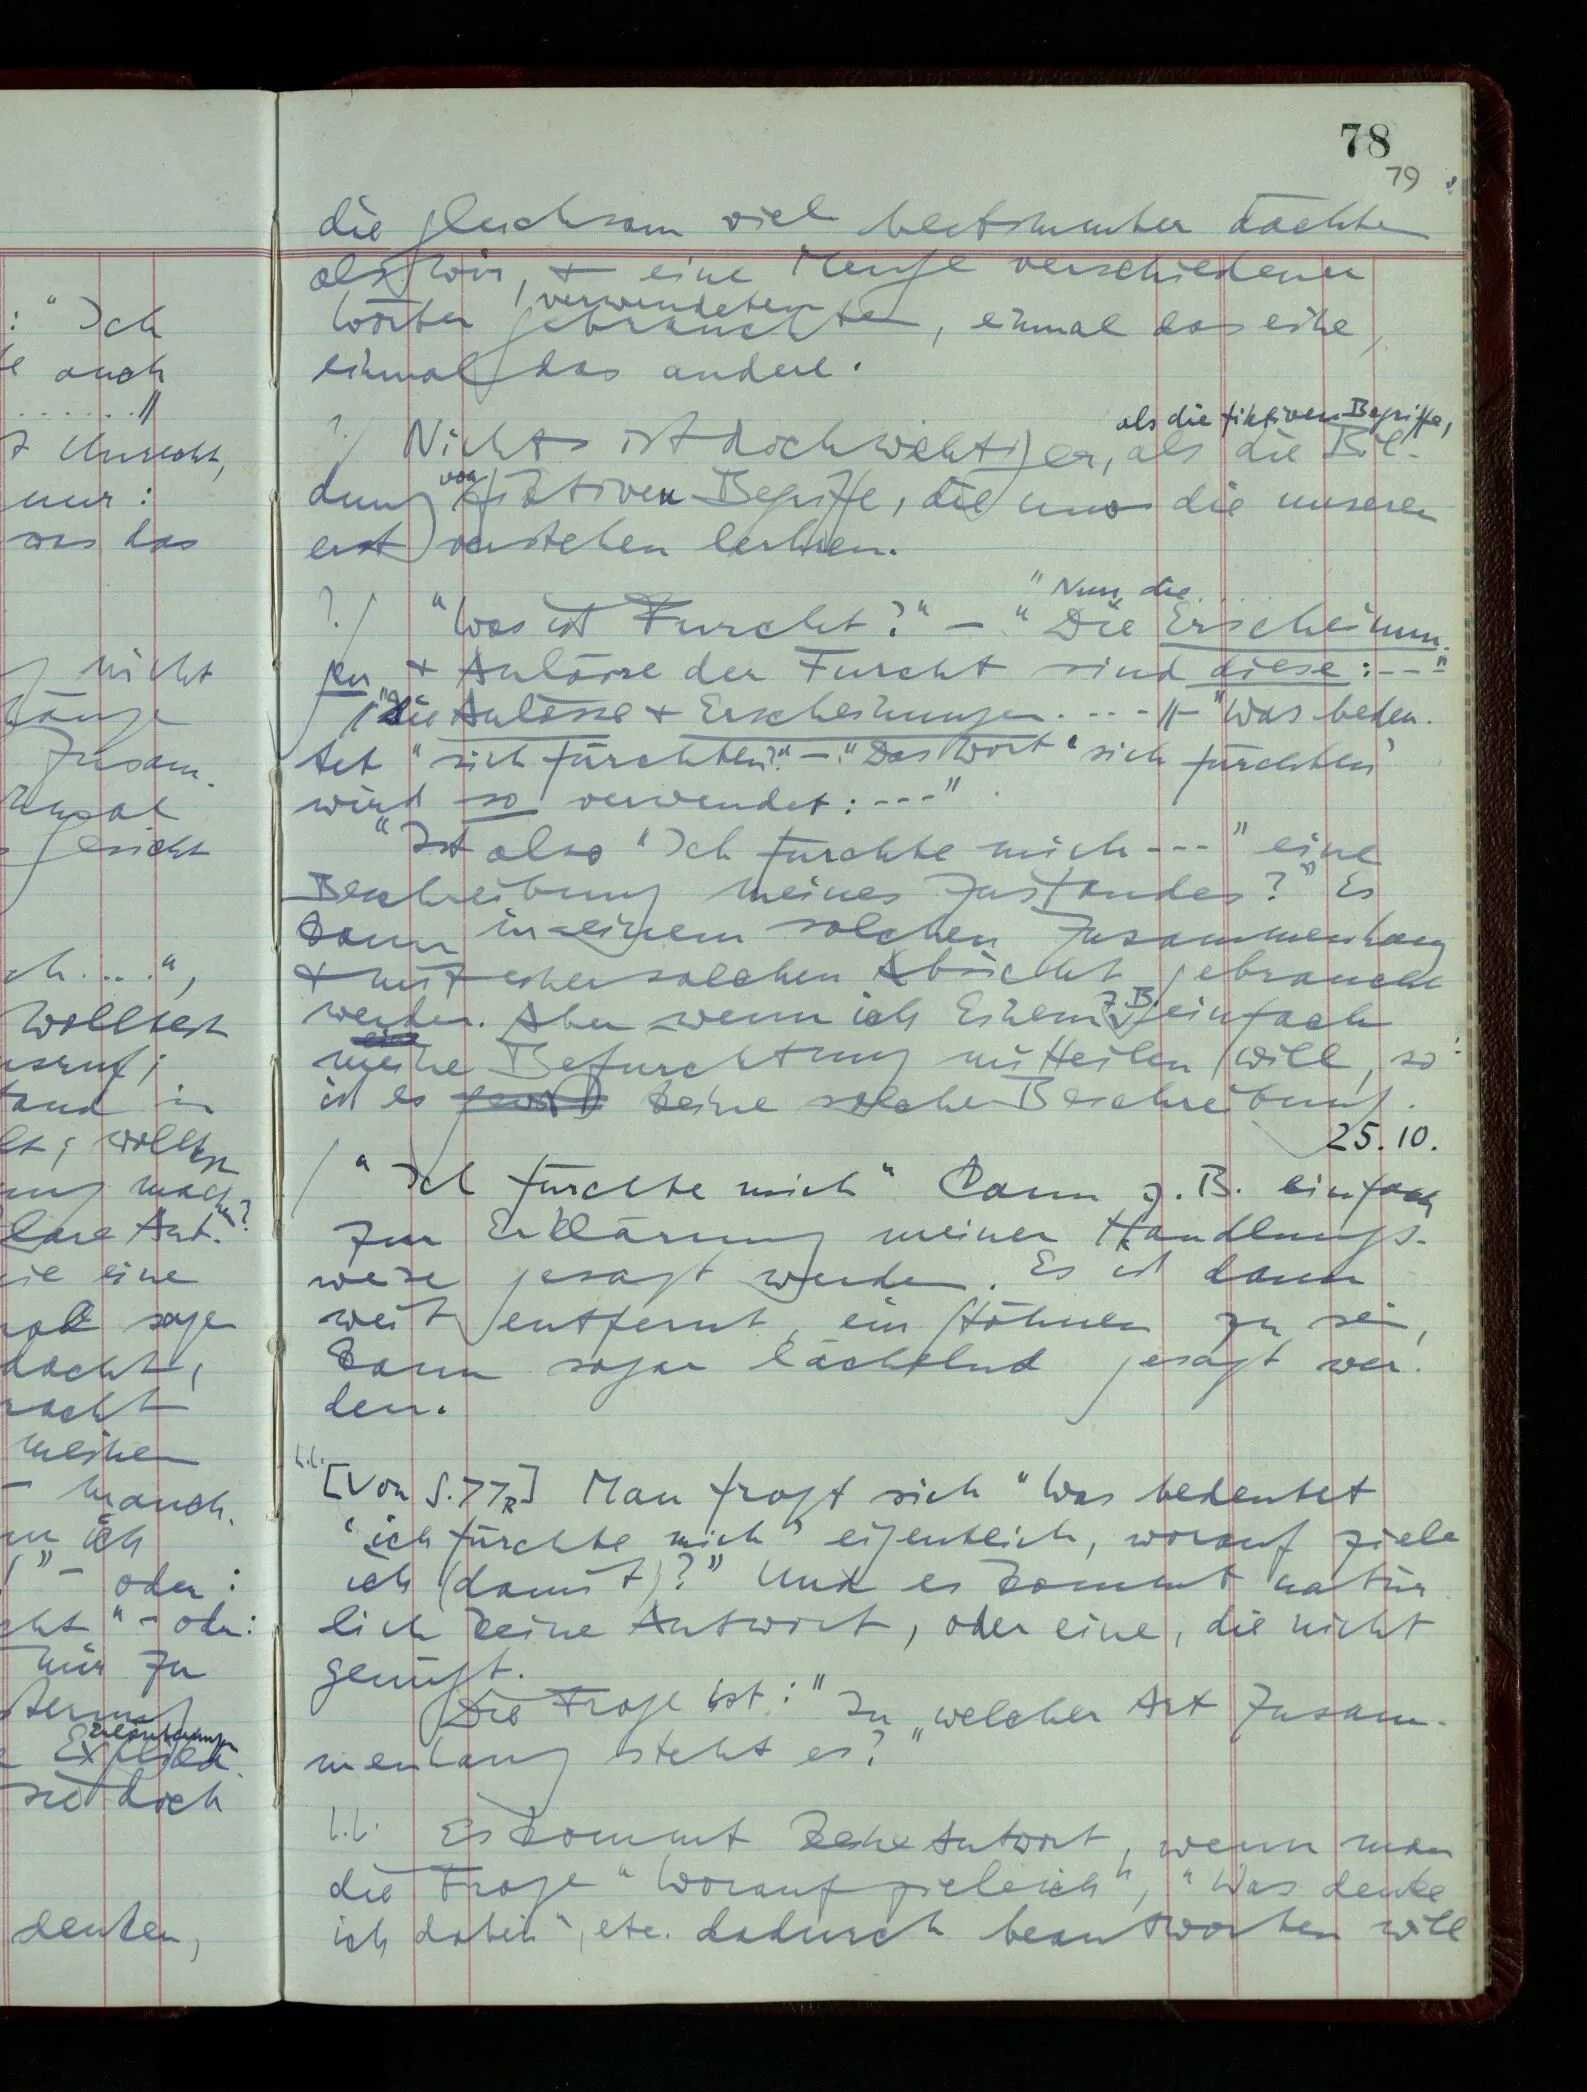 78
79
die gleichsam viel bestimmter dächten
als wir, & eine Menge verschiedener
verwendeten
Wörter gebrauchten, einmal das eine,
einmal das andere.
als die fiktiven Begriffe,
?/ Nichts ist doch wichtiger, als die Bil-
dung von fiktiven Begriffe, die uns die unseren
erst verstehen lehren.
"Nun, die ....
?/ "Was ist Furcht?" – "Die Erscheinun-
gen & Anlässe der Furcht sind diese: ---"
/"Die Anlässe & Erscheinungen. ---"/ – "Was bedeu-
tet "sich fürchten?" – "Das Wort 'sich fürchten'
wird so verwendet: ---".
"Ist also "Ich fürchte mich ---" eine
Beschreibung meines Zustandes?" Es
kann in einem solchen Zusammenhang
& mit einer solchen Absicht gebraucht
werden. Aber wenn ich Einem z.B. einfach
meine Befürchtung mitteilen will, so
ist es keine solche Beschreibung.
25.10.
/ "Ich fürchte mich" kann z.B. einfach
zur Erklärung meiner Handlungs-
weise gesagt werden. Es ist dann
weit entfernt, ein Stöhnen zu sein,
kann sogar lächelnd gesagt wer-
den.
[Von S.77R] Man fragt sich "Was bedeutet
'ich fürchte mich' eigentlich, worauf ziele
ich (damit)?" Und es kommt natür
lich keine Antwort, oder eine, die nicht
genügt.
Die Frage ist: "In welcher Art Zusam-
menhang steht es?"
Es kommt keine Antwort, wenn man
die Frage "Worauf ziele ich", "Was denke
ich dabei", etc. dadurch beantworten will
: "Ich
auch
......"
Unrecht,
nur:
was das
nicht
Zusam-
Gesicht
ch....",
Wolltest
usruf;
tand in
; wolltest
mach
lare Art."
ie eine
sagen
dacht,
meinen
manch-
ich
" – oder:
" – oder:
mir zu
sie doch
denken,